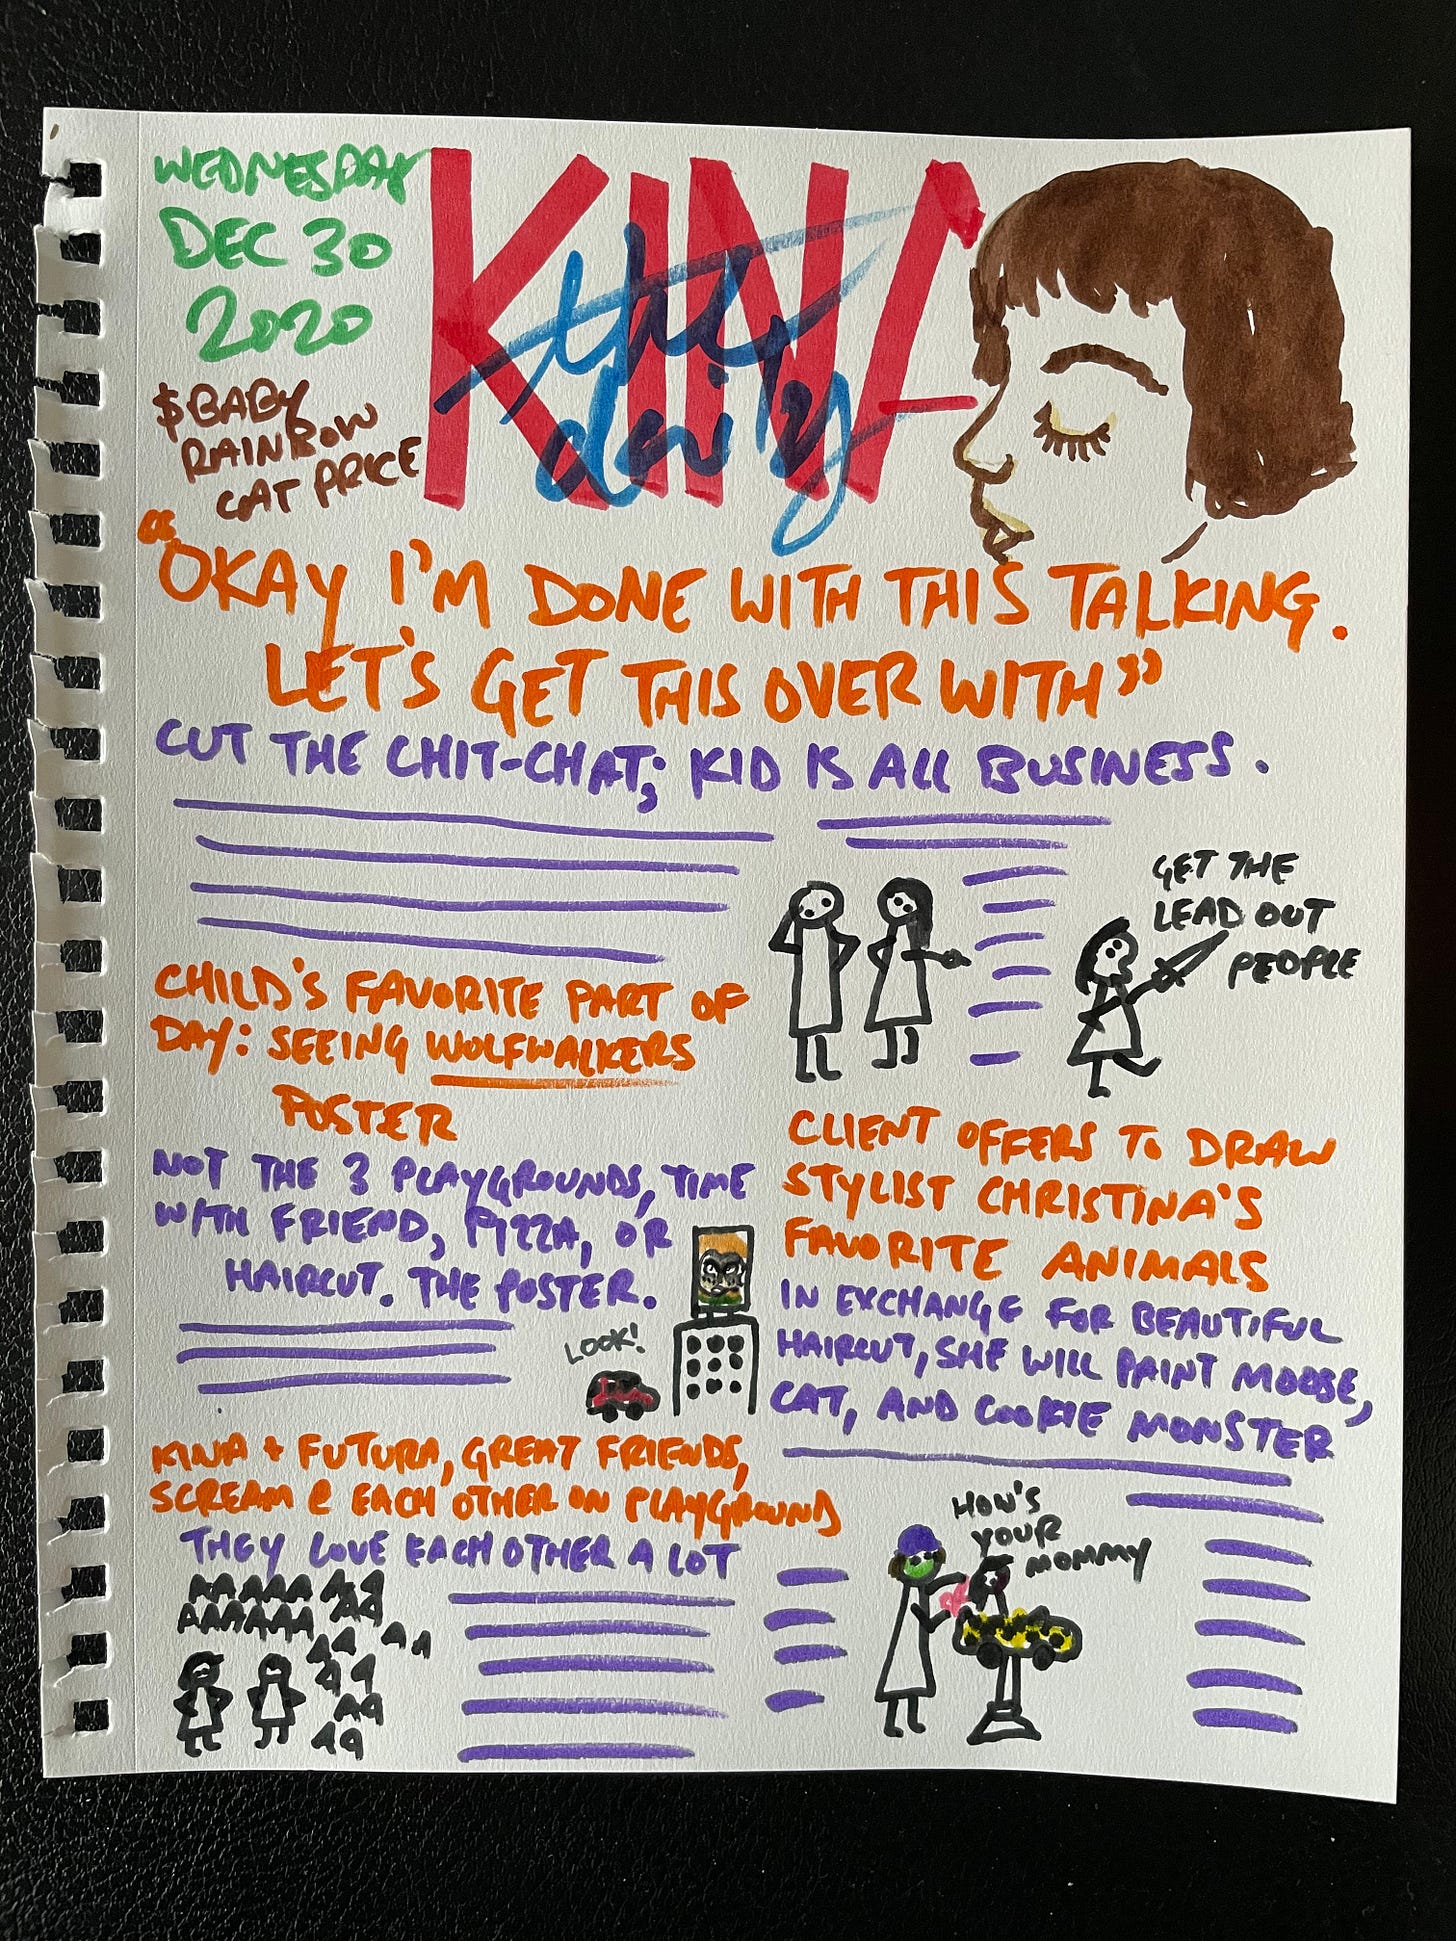 WEDNESDAY
DEC 30
2020
$BABY
RAINBOW
CAT PRICE
KINA
the
daily
"OKAY I'M DONE WITH THIS TALKING.
LET'S GET THIS OVER WITH"
CUT THE CHIT-CHAT; KID IS ALL BUSINESS.
GET THE
LEAD OUT
PEOPLE
CHILD'S FAVORITE PART OF
DAY: SEEING WOLFWALKERS
POSTER
NOT THE 3 PLAYGROUNDS, TIME
WITH FRIEND, PIZZA, OR
HAIRCUT. THE POSTER.
LOOK!
CLIENT OFFERS TO DRAW
STYLIST CHRISTINA'S
FAVORITE ANIMALS
IN EXCHANGE FOR BEAUTIFUL
HAIRCUT, SHE WILL PAINT MOOSE,
CAT, AND COOKIE MONSTER
HOW'S
YOUR
MOMMY
KINA + FUTURA, GREAT FRIENDS,
SCREAM @ EACH OTHER ON PLAYGROUND
THEY LOVE EACH OTHER A LOT
AAAAA AA
AAAAAA AA
AA AA
AA
AA
AA